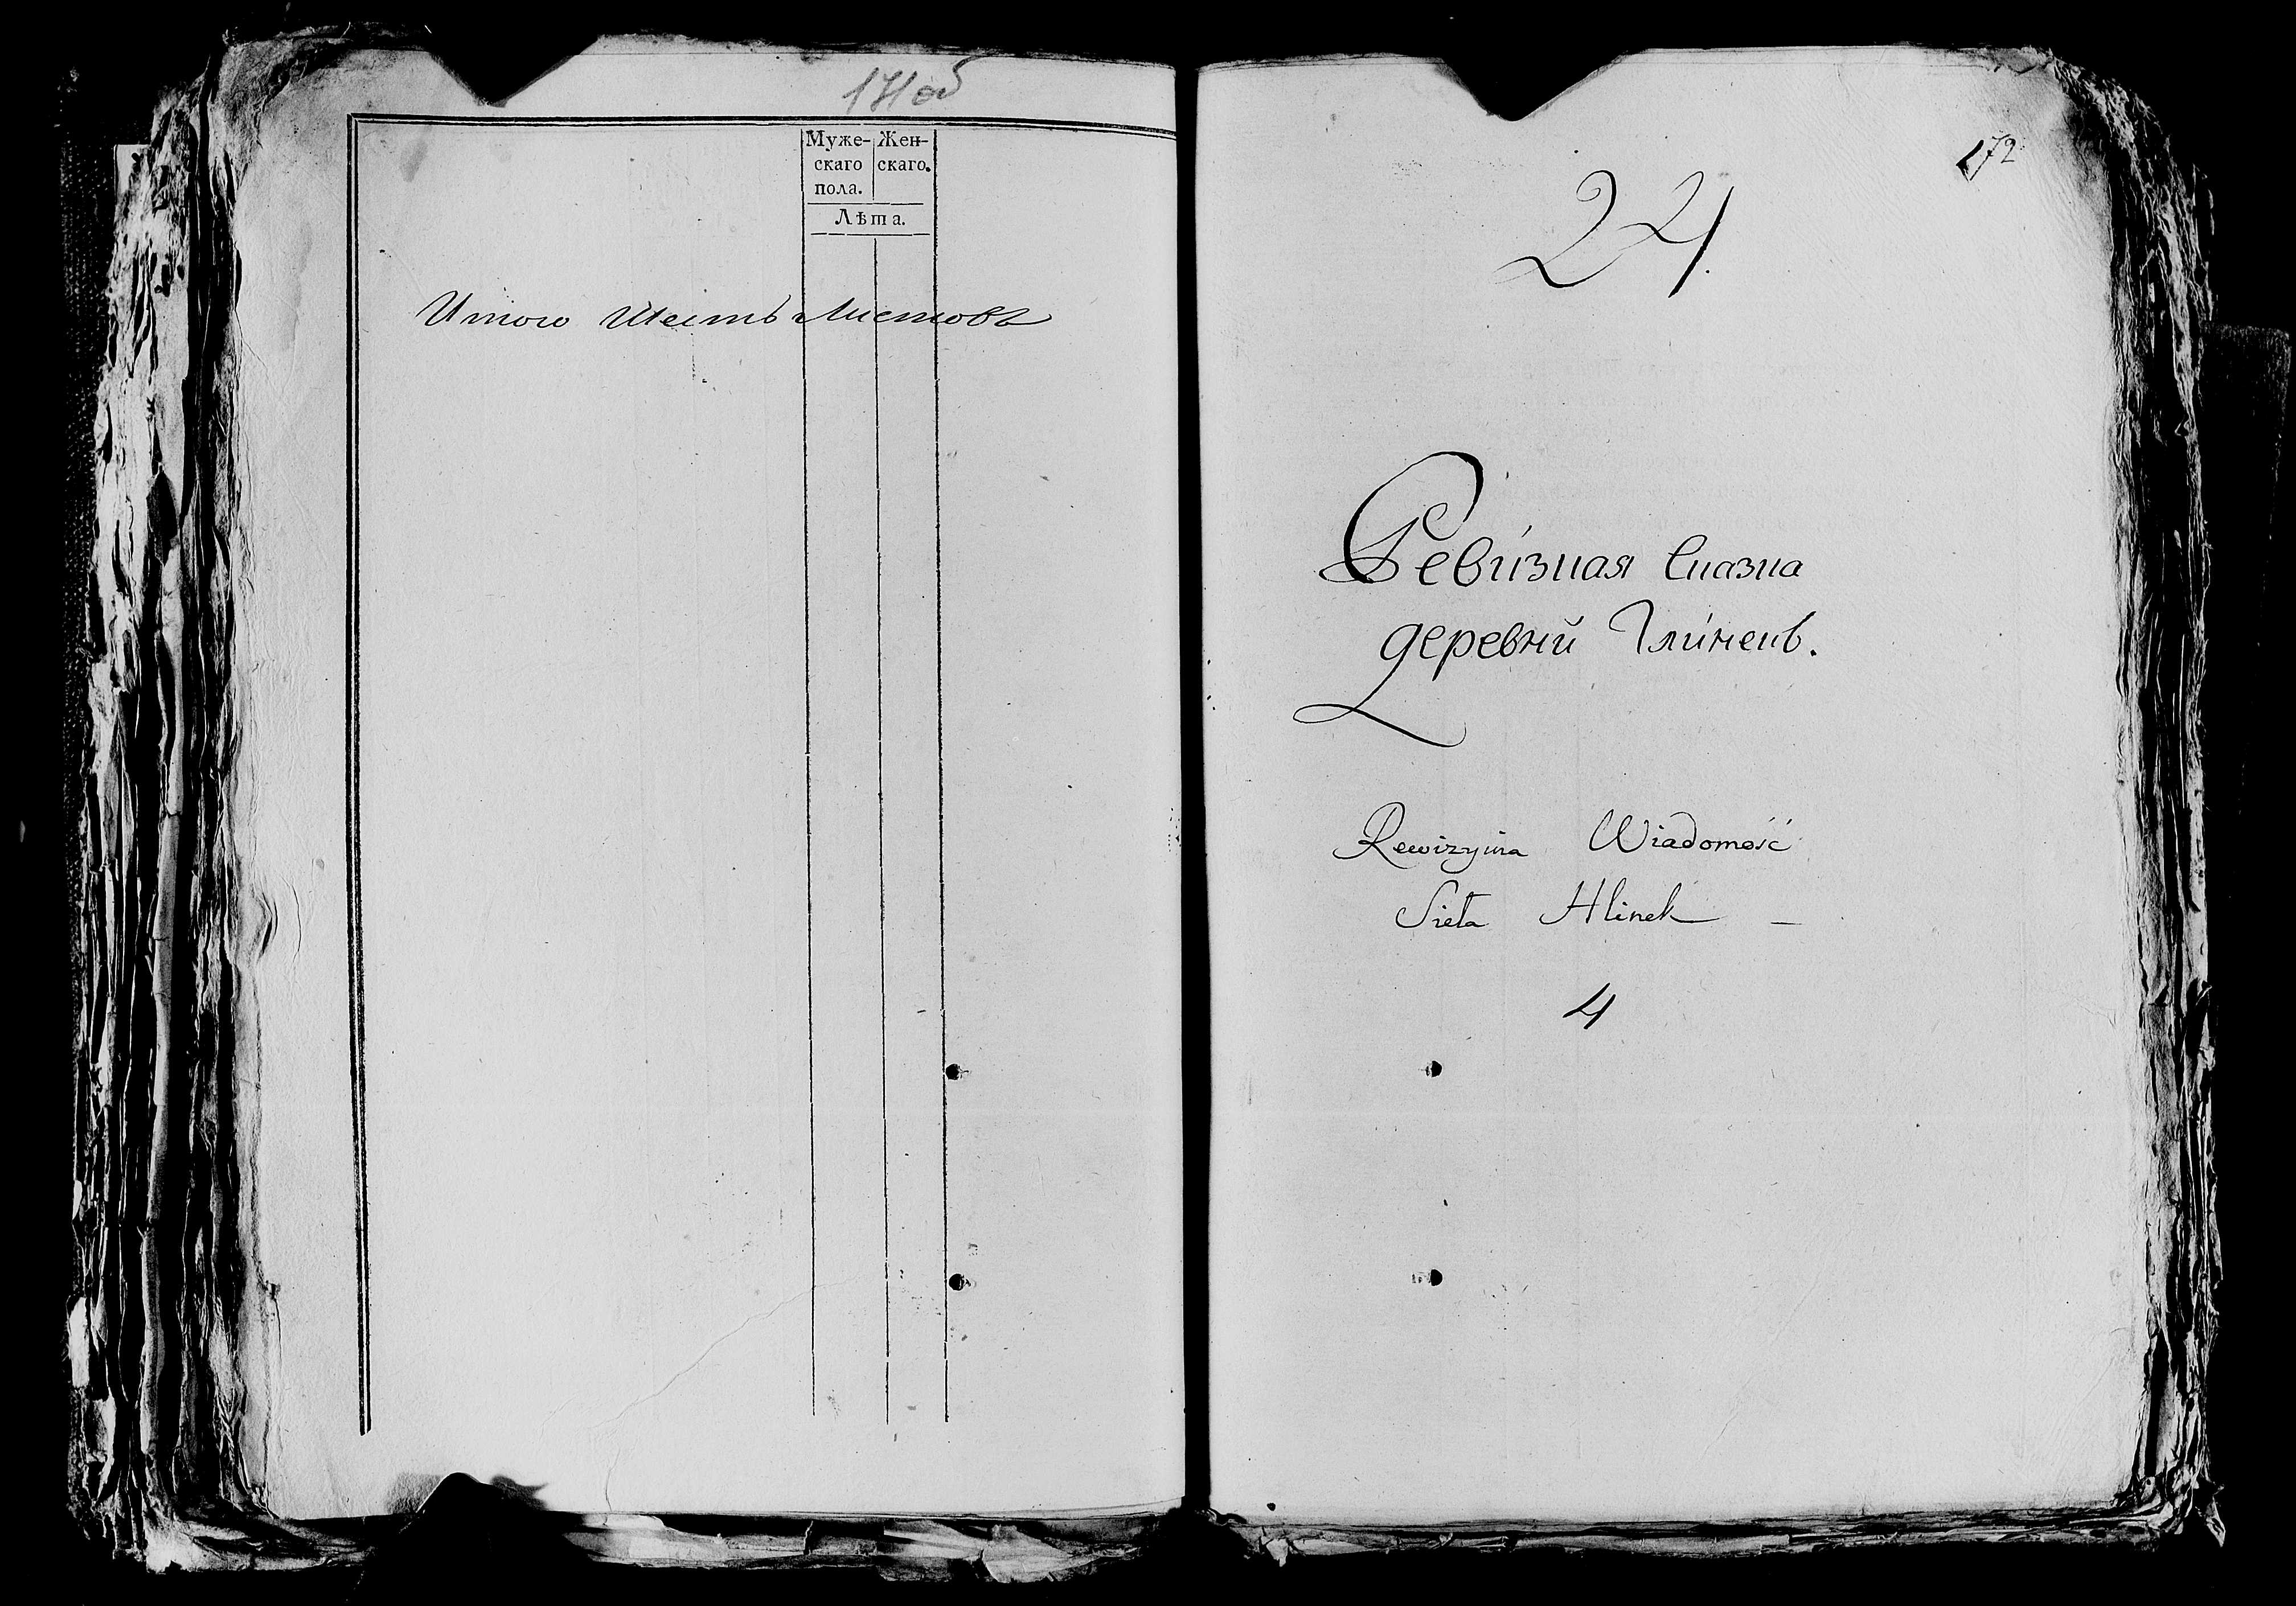 171 об
Муже- Жен-
скаго скаго.
пола.
Лѣта.
Итого Шесть Листовъ
172
24.
Ревизная Сказка
деревни Глинекъ.
Rewizyina Wiadomość
Sieła Hlinek —
4